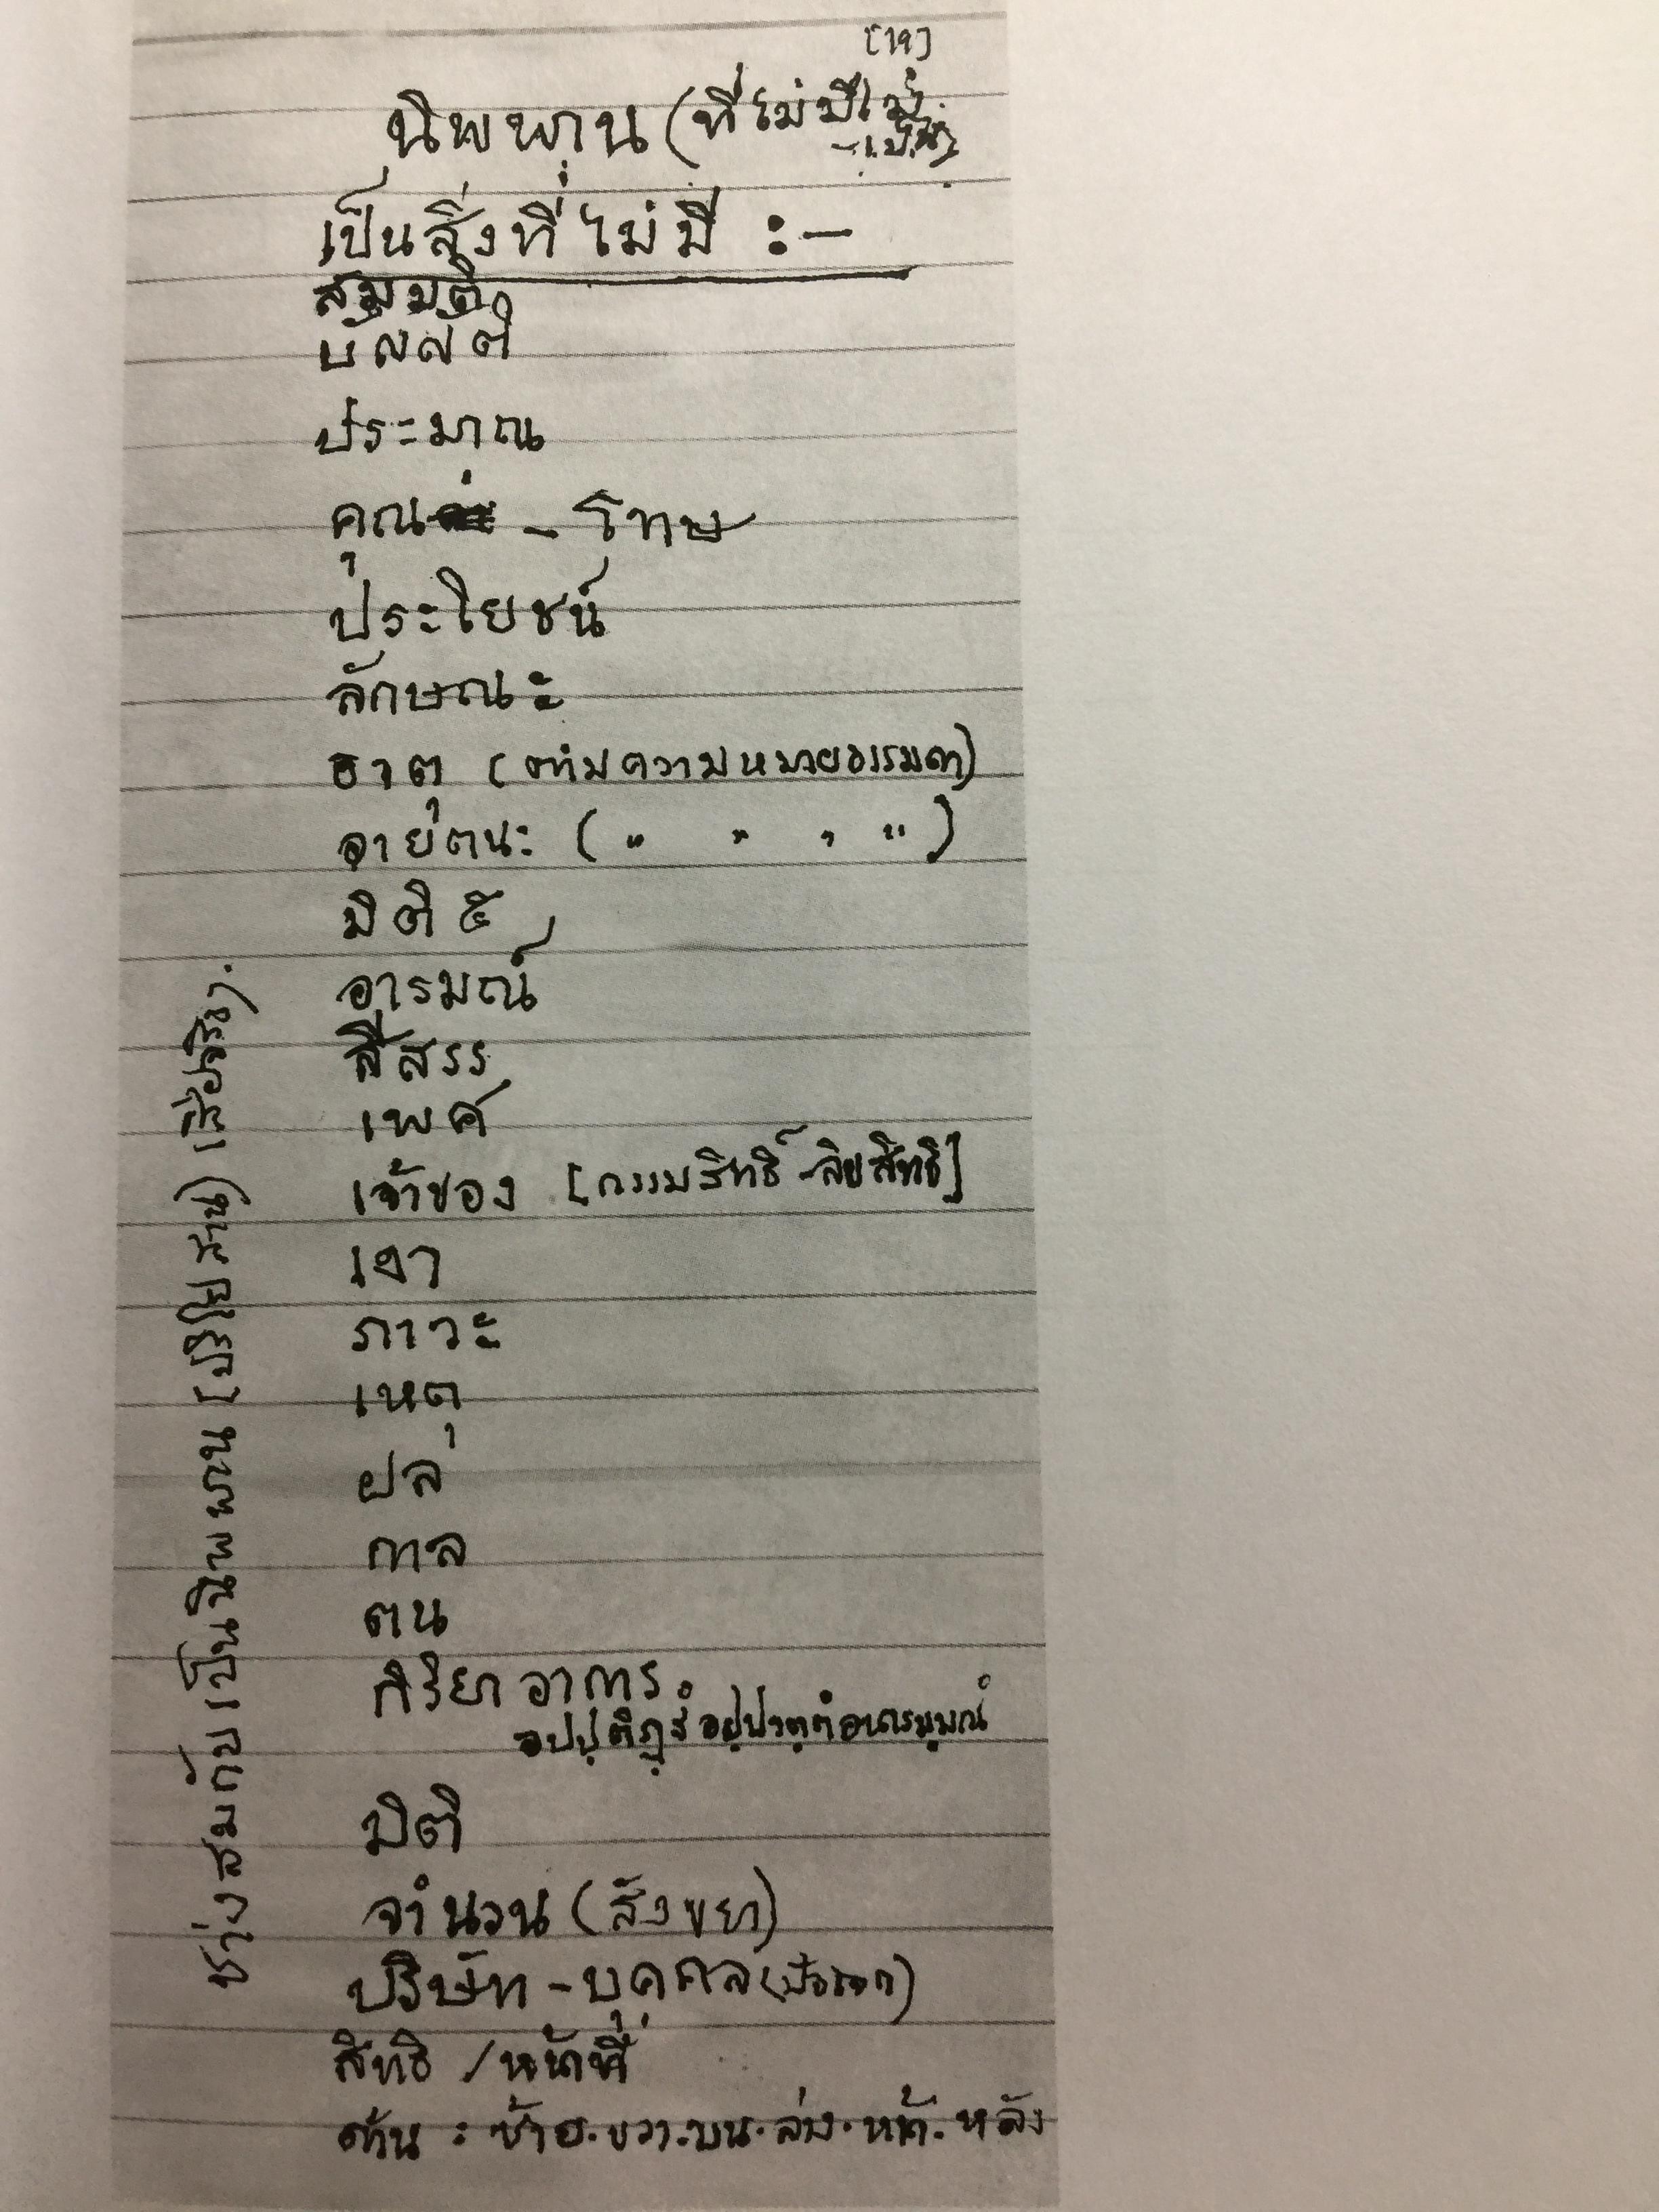 [19]
นิพพาน (ที่ไม่มีไม่
-เป็น)
เป็นสิ่งที่ไม่มี :—
สมมติ
บัญญัติ
ประมาณ
คุณ - โทษ
ประโยชน์
ลักษณะ
ธาตุ (ตามความหมายธรรมดา)
อายตนะ ( " " " " )
มิติ ๕
อารมณ์
สีสรร
เพศ
เจ้าของ [กรรมสิทธิ์-ลิขสิทธิ์]
เงา
ภาวะ
เหตุ
ผล
กาล
ตน
กิริยาอาการ
อปฺปติฏฺฐํ อปฺปวตฺตํ อนารมฺมณํ
มิติ
จำนวน (สังขยา)
บริษัท - บุคคล
สิทธิ / หน้าที่
ด้าน : ซ้าย.ขวา.บน.ล่าง.หน้า.หลัง
ช่างสมกับเป็นนิพพาน (ปริโยสาน) เสียจริง.